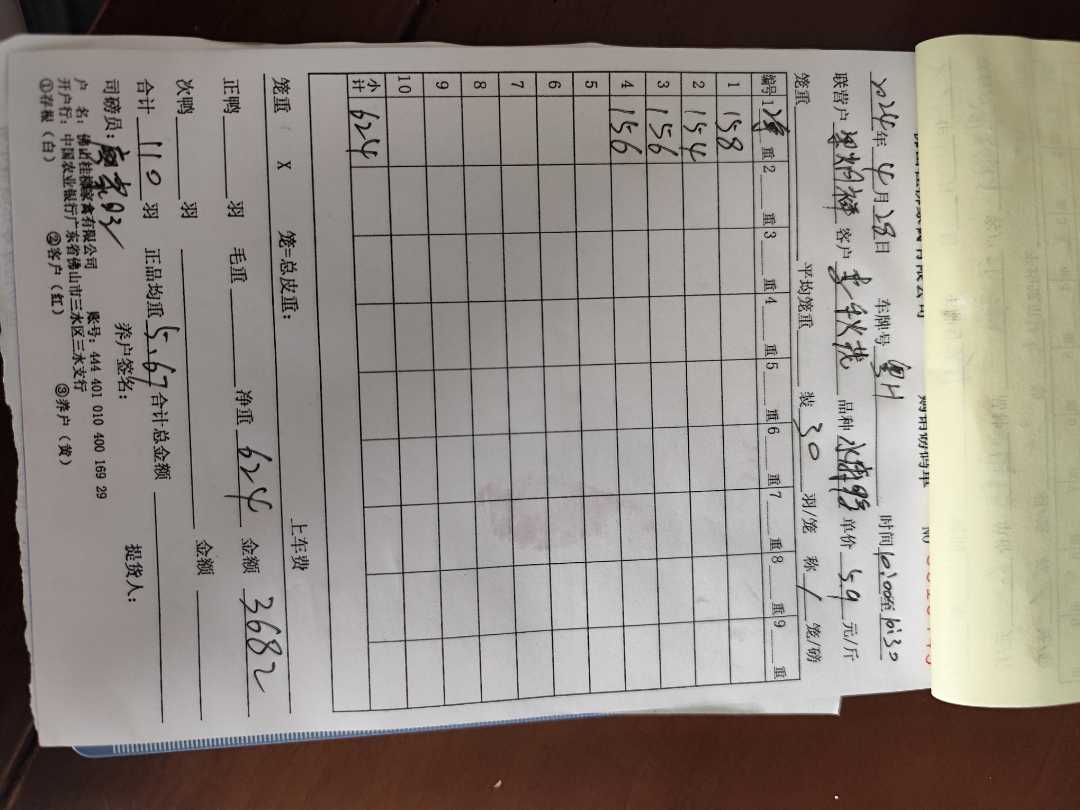 2024年 4月28日 车牌号 粤H 时间 10:00至 10:30
联营户 客户 品种 单价 5.9 元/斤
笼重 平均笼重 装 30 羽/笼 称 1 笼/磅
编号 1 净 重 2 重 3 重 4 重 5 重 6 重 7 重 8 重 9 重
1 158
2 154
3 156
4 156
5
6
7
8
9
10
小计 624
笼重 X 笼=总皮重: 上车费
正鸭 羽 毛重 净重 624 金额 3682
次鸭 羽 金额
合计 110 羽 正品均重 5.67 合计总金额
司磅员: 养户签名: 提货人:
户 名: 佛山桂柳家禽有限公司 账号: 444 401 010 400 169 29
开户行: 中国农业银行广东省佛山市三水区三水支行
①存根(白) ②客户(红) ③养户(黄)